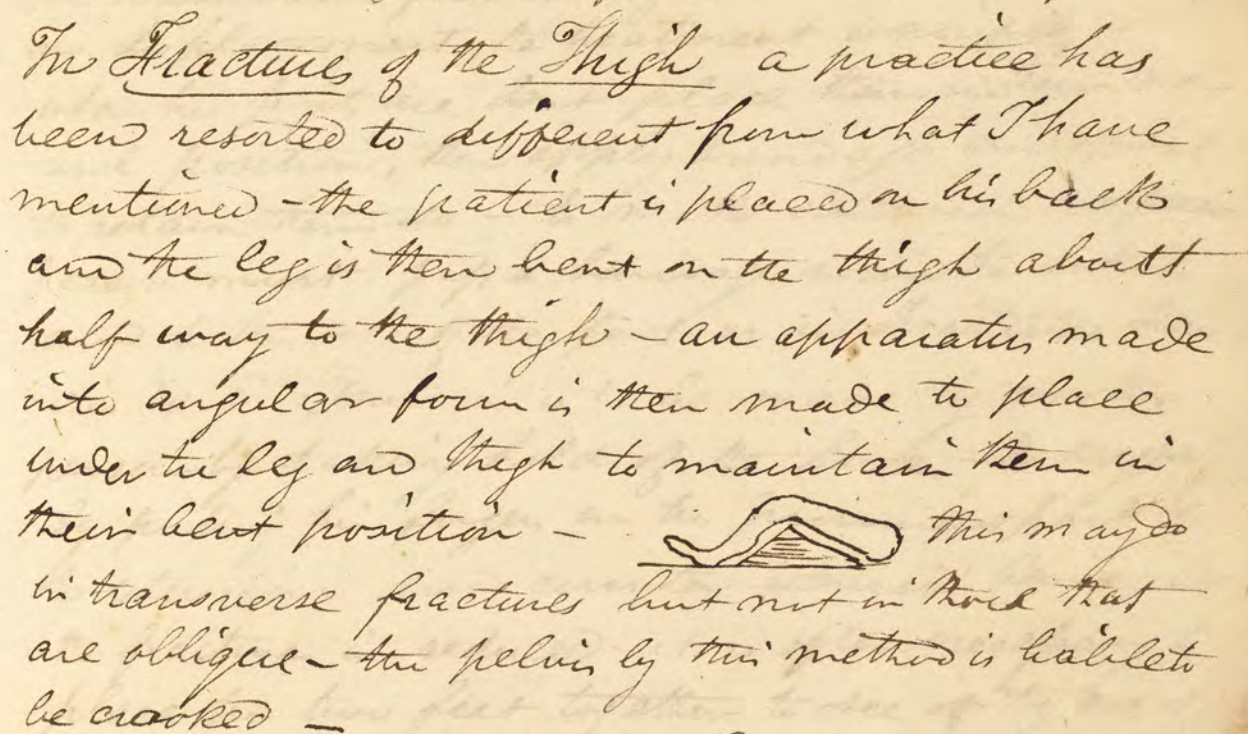 In Fractures of the Thigh a practice has
been resorted to different from what I have
mentioned - the patient is placed on his back
and the leg is then bent on the thigh about
half way to the thigh - an apparatus made
into angular form is then made to place
under the leg and thigh to maintain them in
their bent position - this may do
in transverse fractures but not in those that
are oblique - the pelvis by this method is liable to
be crooked -